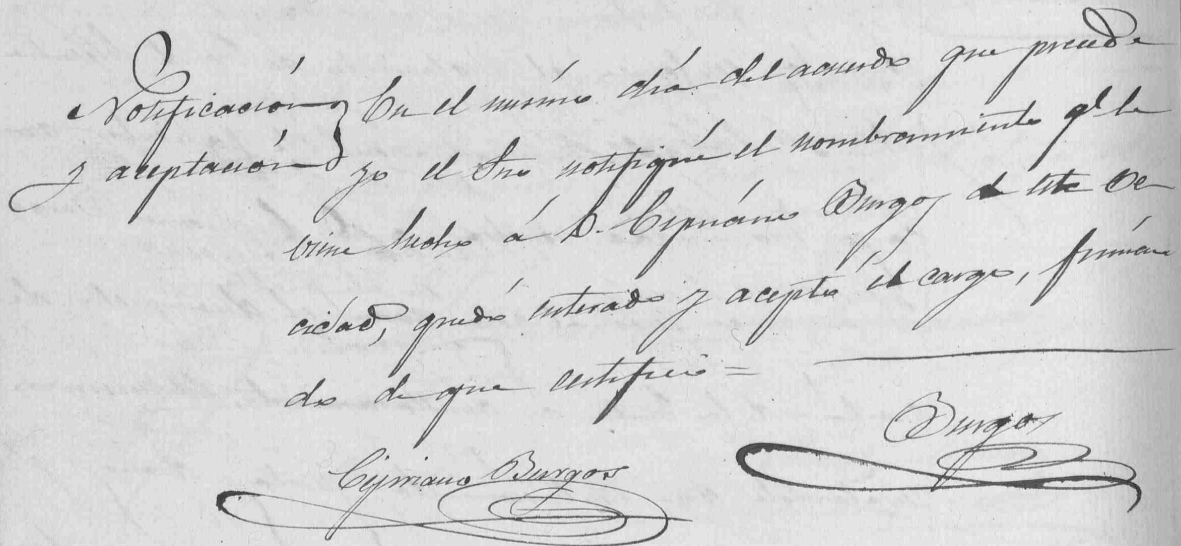 Notificación
y aceptación
En el mismo día del acuerdo que precede
yo el Srio notifiqué el nombramiento qe. le
viene hecho á D. Cipriano Burgos de este ve
cidad, quedó enterado y aceptó el cargo, firman
do de que certifico =
Cipriano Burgos
Burgos